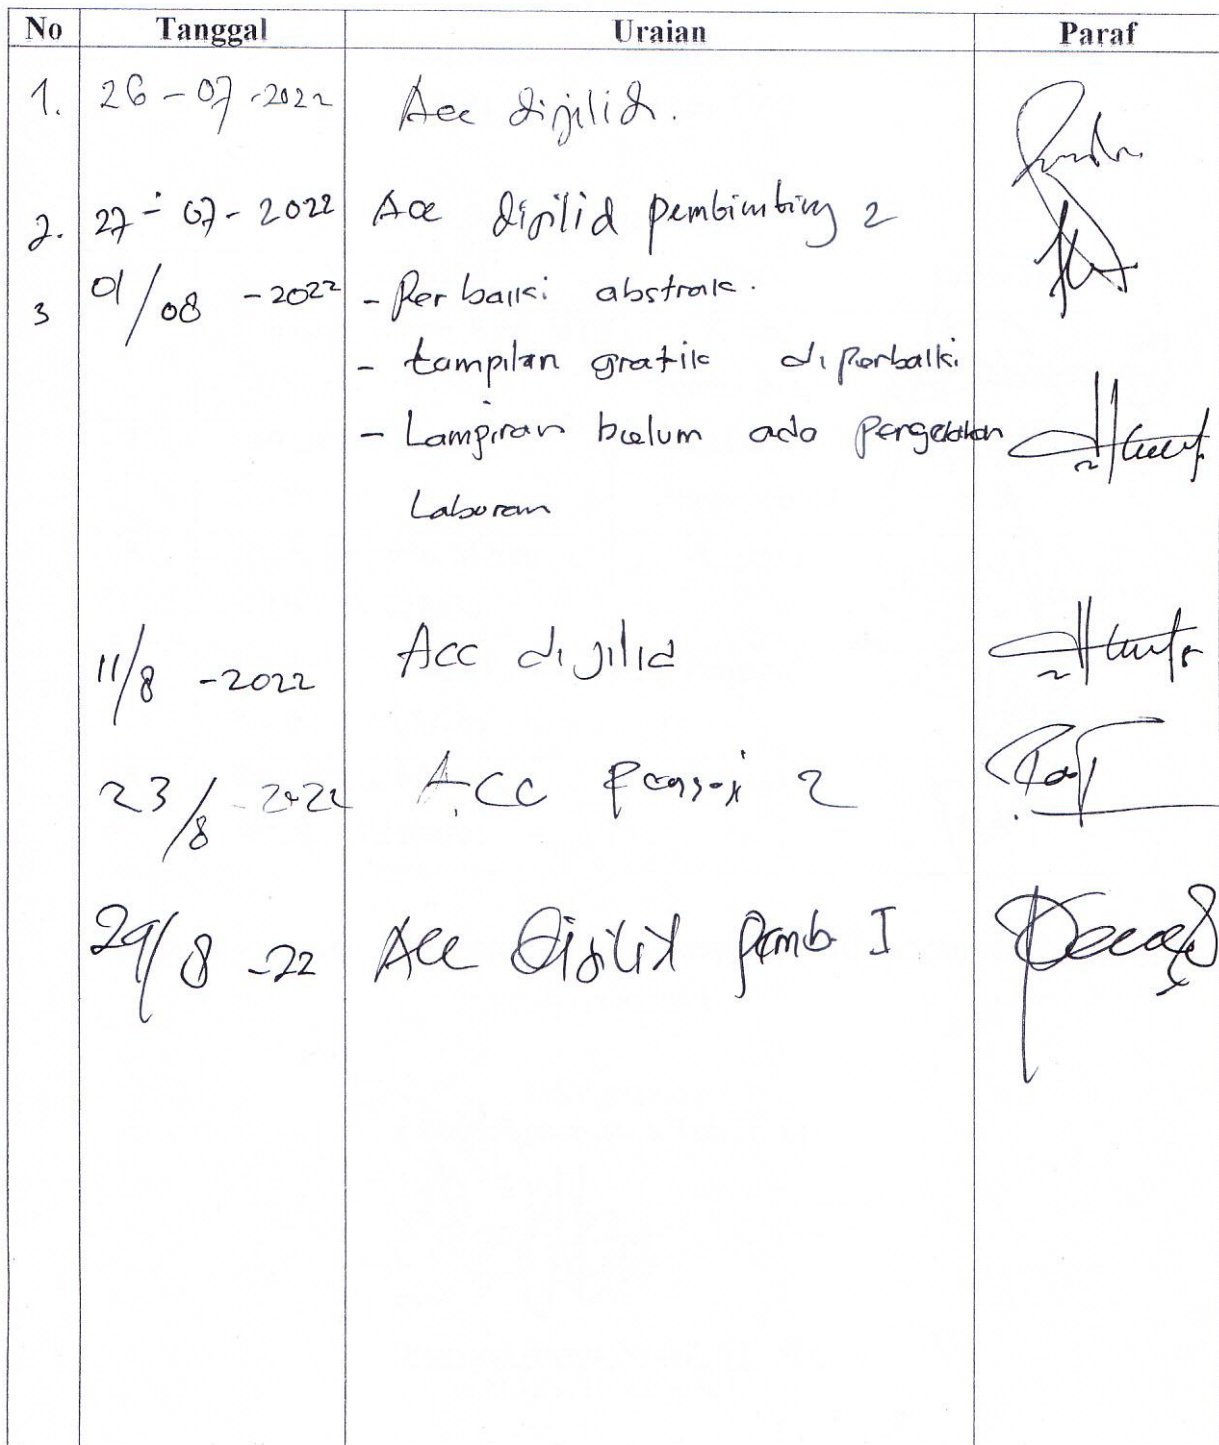 No Tanggal Uraian Paraf
1. 26-07-2022 Acc dijilid.
2. 27-07-2022 Acc dijilid pembimbing 2
3 01/08-2022 - Perbaiki abstrak.
- tampilan grafik diperbaiki
- Lampiran belum ada
Laboran
11/8-2022 Acc dijilid
23/8-2022 ACC 2
29/8-22 Acc Dijilid Pemb I